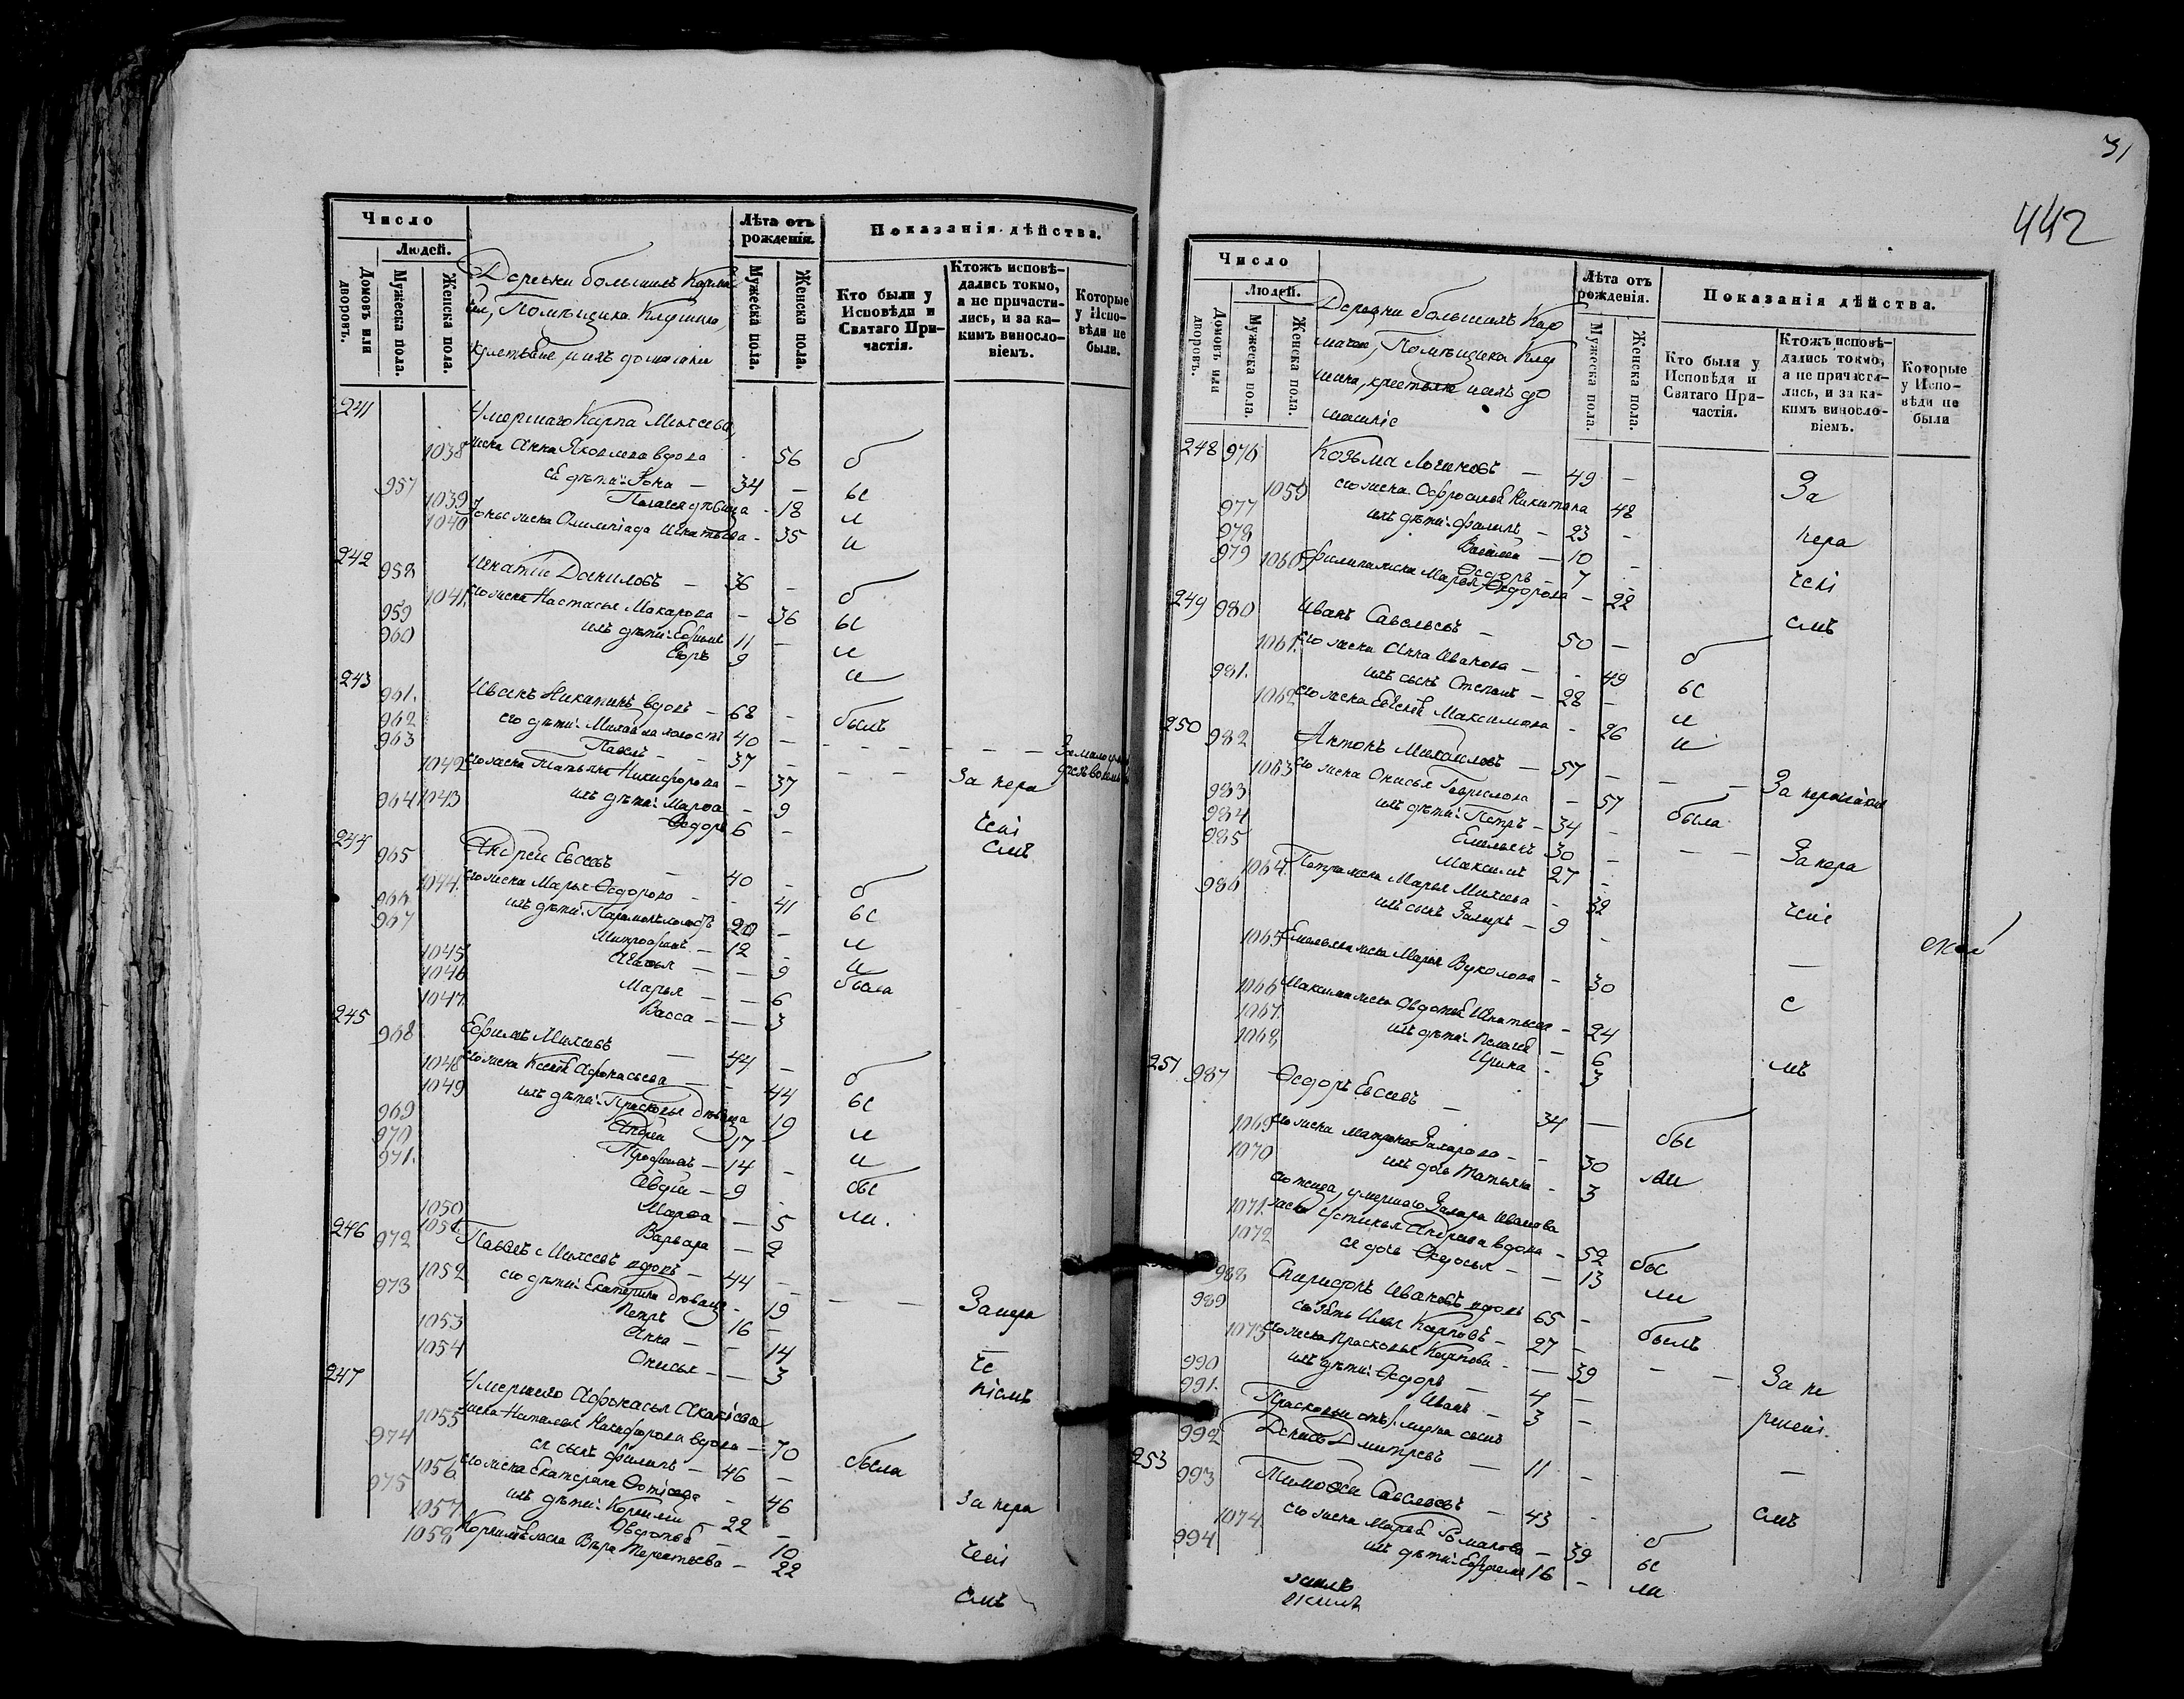 Число
Людей.
Домовъ или дворовъ.
Мужеска пола.
Женска пола.
Лѣта отъ рожденія.
Мужеска пола.
Женска пола.
Показанія дѣйства.
Кто были у Исповѣди и Святаго Причастія.
Ктожъ исповѣдались токмо, а не причастились, и за какимъ винословіемъ.
Которые у Исповѣди не были.
Деревни большихъ
Помѣщика
и ихъ домашніи
241 Умершаго Карпа Михеева
1038 жена Анна Яковлева вдова - 56 б
957 ея дѣти: Iона - 34 - ы
1039 Пелагея дѣвица - 18 л
1040 Iоны жена Олимпіада Игнатьева - 35 и
242 958 Игнатіи Даниловъ - 36 - б
1041. его жена Настасья Макарова - 36 ы
959 ихъ дѣти: Ефимъ 11 - л
960 Егоръ 9 и
243 961. Иванъ Никитинъ вдовъ - 68 - былъ
962 его дѣти: Михаила холостъ 40 -
963 Павелъ - 37 -
1042 его жена Татьяна Никифорова - 37 За нера
964 1043 ихъ дѣти: Марѳа - 9
Ѳедоръ 6 - чені
емъ
244 965 Андреи Евсеевъ - 40 - б
1044. его жена Марья Ѳедорова - 41 ы
966 ихъ дѣти: Парамонъ холостъ 20 - л
967 Митрофанъ - 12 - и
1045 Авдотья - 9 была
1046 Марья - 6
1047. Васса - 3
245 968 Ефимъ Михеевъ - 44 - б
1048 его жена Ксенья Афонасьева - 44 ы
1049 ихъ дѣти: Прасковья дѣвица 19 л
969 Андреи 17 и
970 Трофимъ - 14 - бы
971. Авдѣи - 9 ли.
1050 Марѳа - 5
1051. Варвара - 2
246 972 Павелъ Михеевъ вдовъ - 44 -
1052 его дѣти: Екатерина дѣвица - 19 За нера
973 Петръ 16 -
1053 Анна - 14 че
1054 Онисья - 3 ніемъ
247 Умершаго Афонасья Акакіева
1055 жена Наталья Никифорова вдова - 70 была
974 ея сынъ Филипъ - 46 -
1056 его жена Екатерина Ѳотіева - 46 За нера
975 ихъ дѣти: Корниліи - 22 -
1057. Авдотья - 10 чені
1058 Корнилья жена Вѣра Терентьева - 22 емъ
31
442
Число
Людей.
Домовъ или дворовъ.
Мужеска пола.
Женска пола.
Лѣта отъ рожденія.
Мужеска пола.
Женска пола.
Показанія дѣйства.
Кто были у Исповѣди и Святаго Причастія.
Ктожъ исповѣдались токмо, а не причастились, и за какимъ винословіемъ.
Которые у Исповѣди не были
Деревни большихъ Кар
Помѣщика
крестьяне и ихъ до
машніе
248 976 Козьма Логиновъ - 49 - За
1059 его жена Офросинья Никитина 48
977 ихъ дѣти: Филипъ - 23 - нера
978 Василеи - 10
979 Ѳедоръ - 7 - чені
1060 Филипа жена Марья Ѳедорова - 22 емъ
249 980 Иванъ Савельевъ - 50 - б
1061. его жена Анна Иванова - 49 ы
981. ихъ сынъ Степанъ - 28 - л
1062 его жена Евгенья Максимова - 26 и
250 982 Антонъ Михаиловъ - 57 - - - За нераченіемъ
1063 его жена Онисья Гаврилова - 57 была
983 ихъ дѣти: Петръ - 34 -
984 Емельянъ 30 - - - За нера
985 Максимъ 27 -
1064. Петра жена Марья Михеева - 32 чені
986 ихъ сынъ Захаръ - 9 -
1065 Емельяна жена Марья Вуколова - 30 е
1066 Максима жена Авдотья Игнатьева - 24
1067. ихъ дѣти: Пелагея - 6 мъ
1068 Ирина - 3
251 987 Ѳедоръ Евсеевъ - 34 - бы
1069 его жена Матрона Захарова - 30
1070 ихъ дочь Татьяна - 3 ли
умершаго Захара Иванова
1071. жена Устинья Андреева вдова - 52 бы
1072 ея дочь Ѳедосья - 13 ли
988 Спиридонъ Ивановъ вдовъ 65 - былъ
989 его зять Илья Карповъ - 27 -
1073 его жена Прасковья Карпова - 39 - - За не
990 ихъ дѣти: Ѳедоръ - 4 -
991. Иванъ - 3 - рчені.
Прасковьи отъ 1 мужа сынъ
992 Денисъ Дмитревъ - 11 -
253 993 Тимоѳеи Савельевъ - 43 - емъ
1074. его жена Марья Ермакова - 39 б
994 ихъ дѣти: Ефремъ 16 - ы
ли